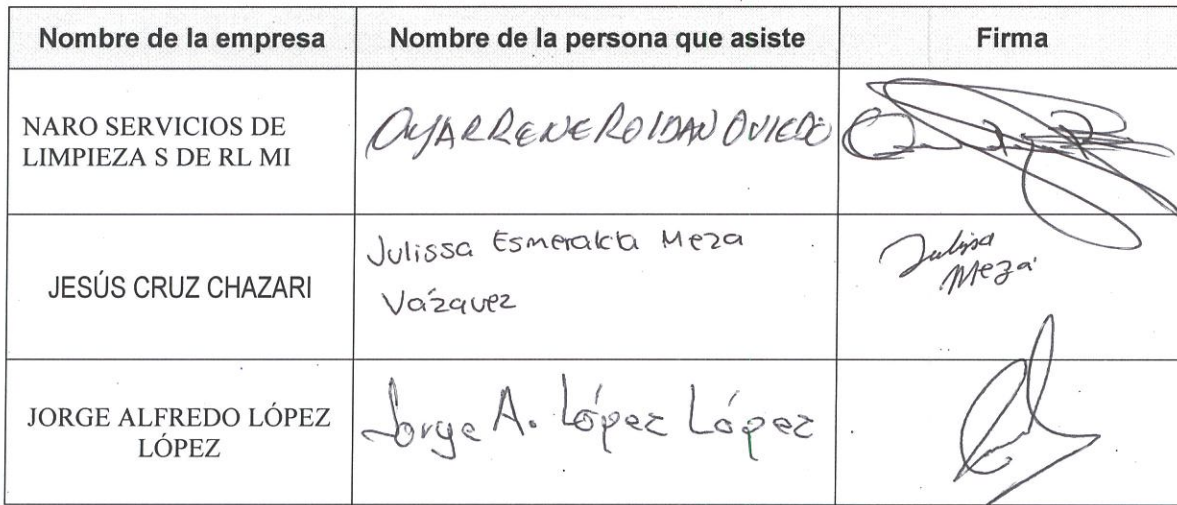 Nombre de la empresa Nombre de la persona que asiste Firma
NARO SERVICIOS DE
LIMPIEZA S DE RL MI
RENE ROLDAN OVIEDO
JESÚS CRUZ CHAZARI
Julissa Esmeralda Meza
Vázquez
Julissa
Meza
JORGE ALFREDO LÓPEZ
LÓPEZ
Jorge A. López López